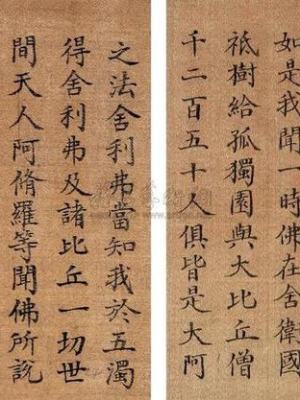 如是我聞一時佛在舍衛國
祇樹給孤獨園與大比丘僧
千二百五十人俱皆是大阿
之法舍利弗當知我於五濁
得舍利弗及諸比丘一切世
間天人阿脩羅等聞佛所說